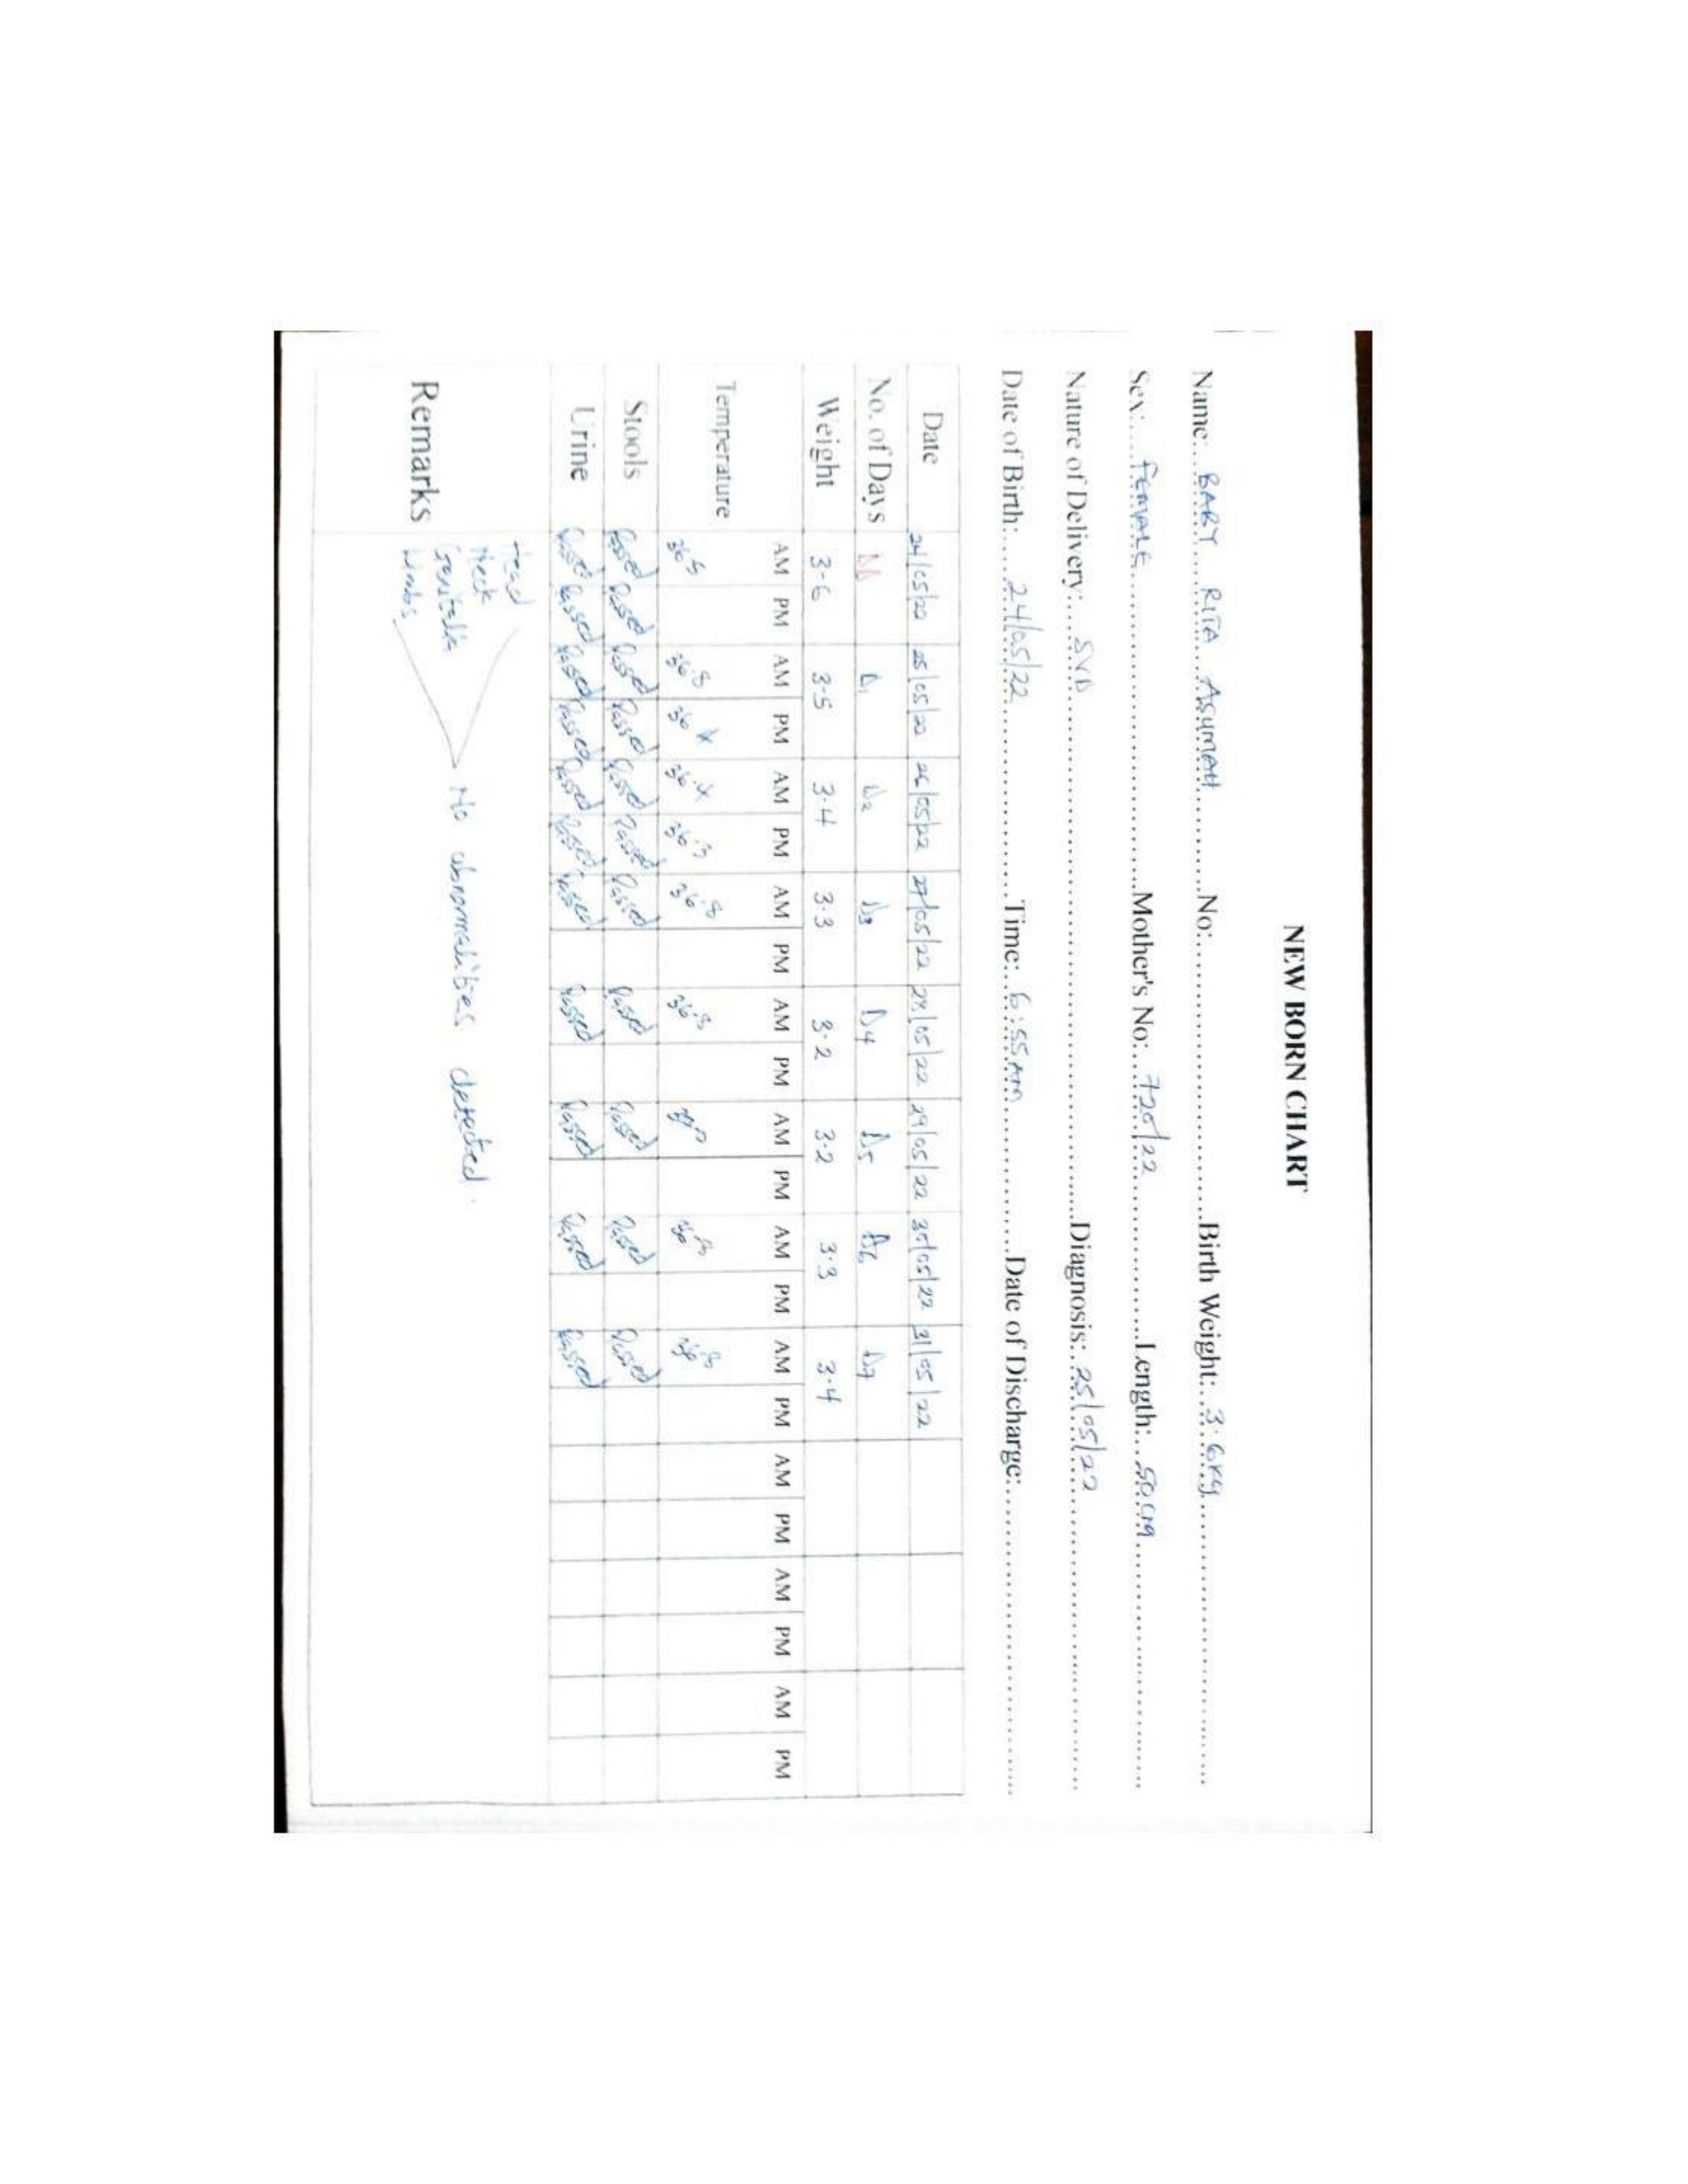 NEW BORN CHART
Name:...BABY RITA ASUMAH...No:...Birth Weight:...3.6kg...
Sex:...FEMALE...Mother's No:...720/22...Length:...50cm...
Nature of Delivery:...SVD...Diagnosis:...25/05/22...
Date of Birth:...24/05/22...Time:..6:55Am...Date of Discharge:...
Date 24/05/22 25/05/22 26/05/22 27/05/22 28/05/22 29/05/22 30/05/22 31/05/22
No. of Days D1 D2 D3 D4 D5 D6 D7
Weight 3-6 3-5 3-4 3-3 3-2 3-2 3-3 3-4
AM PM AM PM AM PM AM PM AM PM AM PM AM PM AM PM AM PM AM PM AM PM
Temperature 36.5 36.8 36.8
Stools Passed Passed Passed Passed Passed Passed Passed Passed Passed Passed Passed
Urine Passed Passed Passed Passed Passed Passed Passed Passed Passed Passed Passed
Remarks
Head
Neck
Genitalia
Limbs
No abnormalities detected.